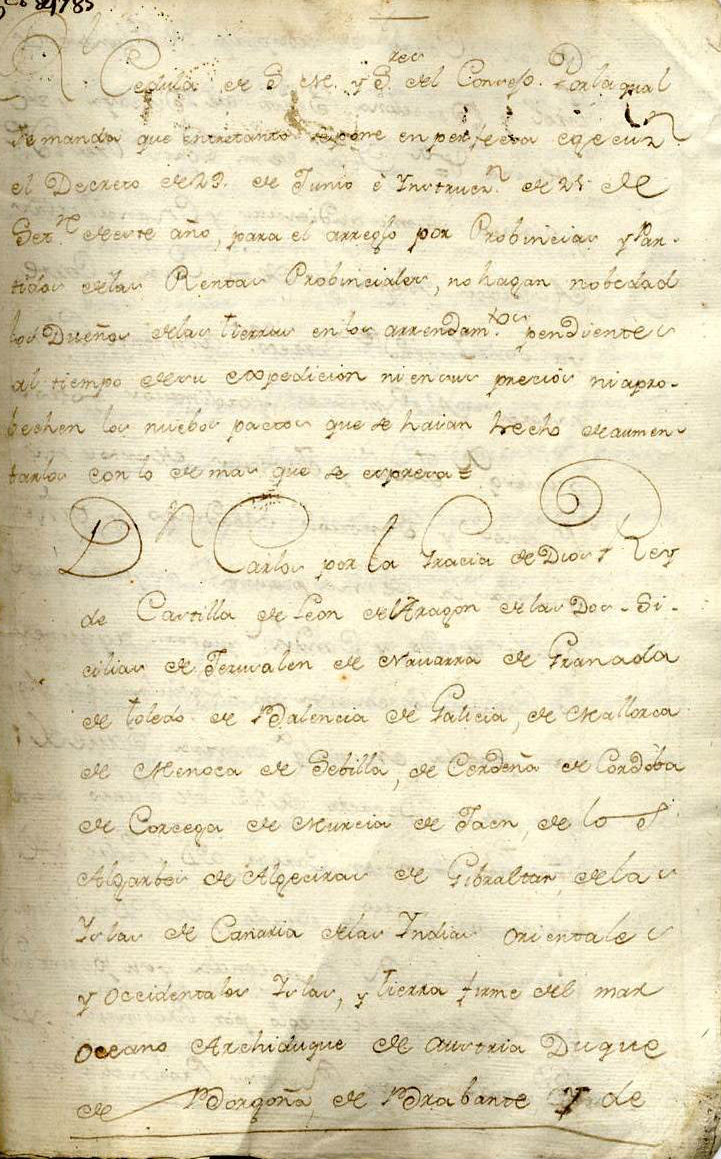 1785
R Cedula de S. M. y S.res del Consejo. Por la qual
se manda que entretanto se pone en perfecta egecuz.n
el Decreto de 29. de Junio è Instruc.n de 21 de
Set.re de este año, para el arreglo por Probincias y Par-
tidos de las Rentas Probinciales, no hagan nobedad
los Dueños de las tierras en los arrendam.tos pendientes
al tiempo de su expedicion ni en sus precios ni apro-
bechen los nuebos pactos que se haian hecho de aumen-
tarlos con lo demas que se expresa=
D.n Carlos por la Gracia de Dios Rey
de Castilla de Leon de Aragon de las Dos-Si-
cilias de Jerusalen de Navarra de Granada
de toledo de Balencia de Galicia, de Mallorca
de Menoca de Sebilla, de Cerdeña de Cordòba
de Corcega de Murcia de Jaen, de los
Algarbes de Algeciras de Gibraltar, de las
Islas de Canaria de las Indias orientales
y occidentales Islas, y tierra firme del mar
oceano Archiduque de Austria Duque
de Borgoña, de Brabante y de